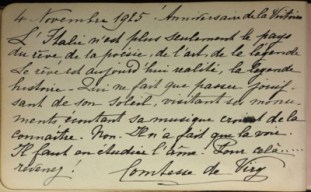 4 Novembre 1925 Anniversaire de la Victoire
L'Italie n'est plus seulement le pays
du rêve de la poésie, de l'art, de la légende
Le rêve est aujourd'hui realité, la légende
histoire. Qui ne fait que passer jouis-
sant de son soleil, visitant ses monu-
ments écoutant sa musique croit de la
connaître. Non. Il n'a fait que la voir.
Il faut en étudier l'âme. Pour celà.....
revenez!
Comtesse de Viry